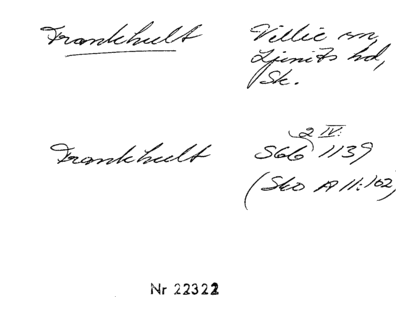 Frankhult Villie sn,
Ljunits hd,
Sk.
Frankhult S66 2 IV: 1139
(Sko A 11:102)
Nr 22322